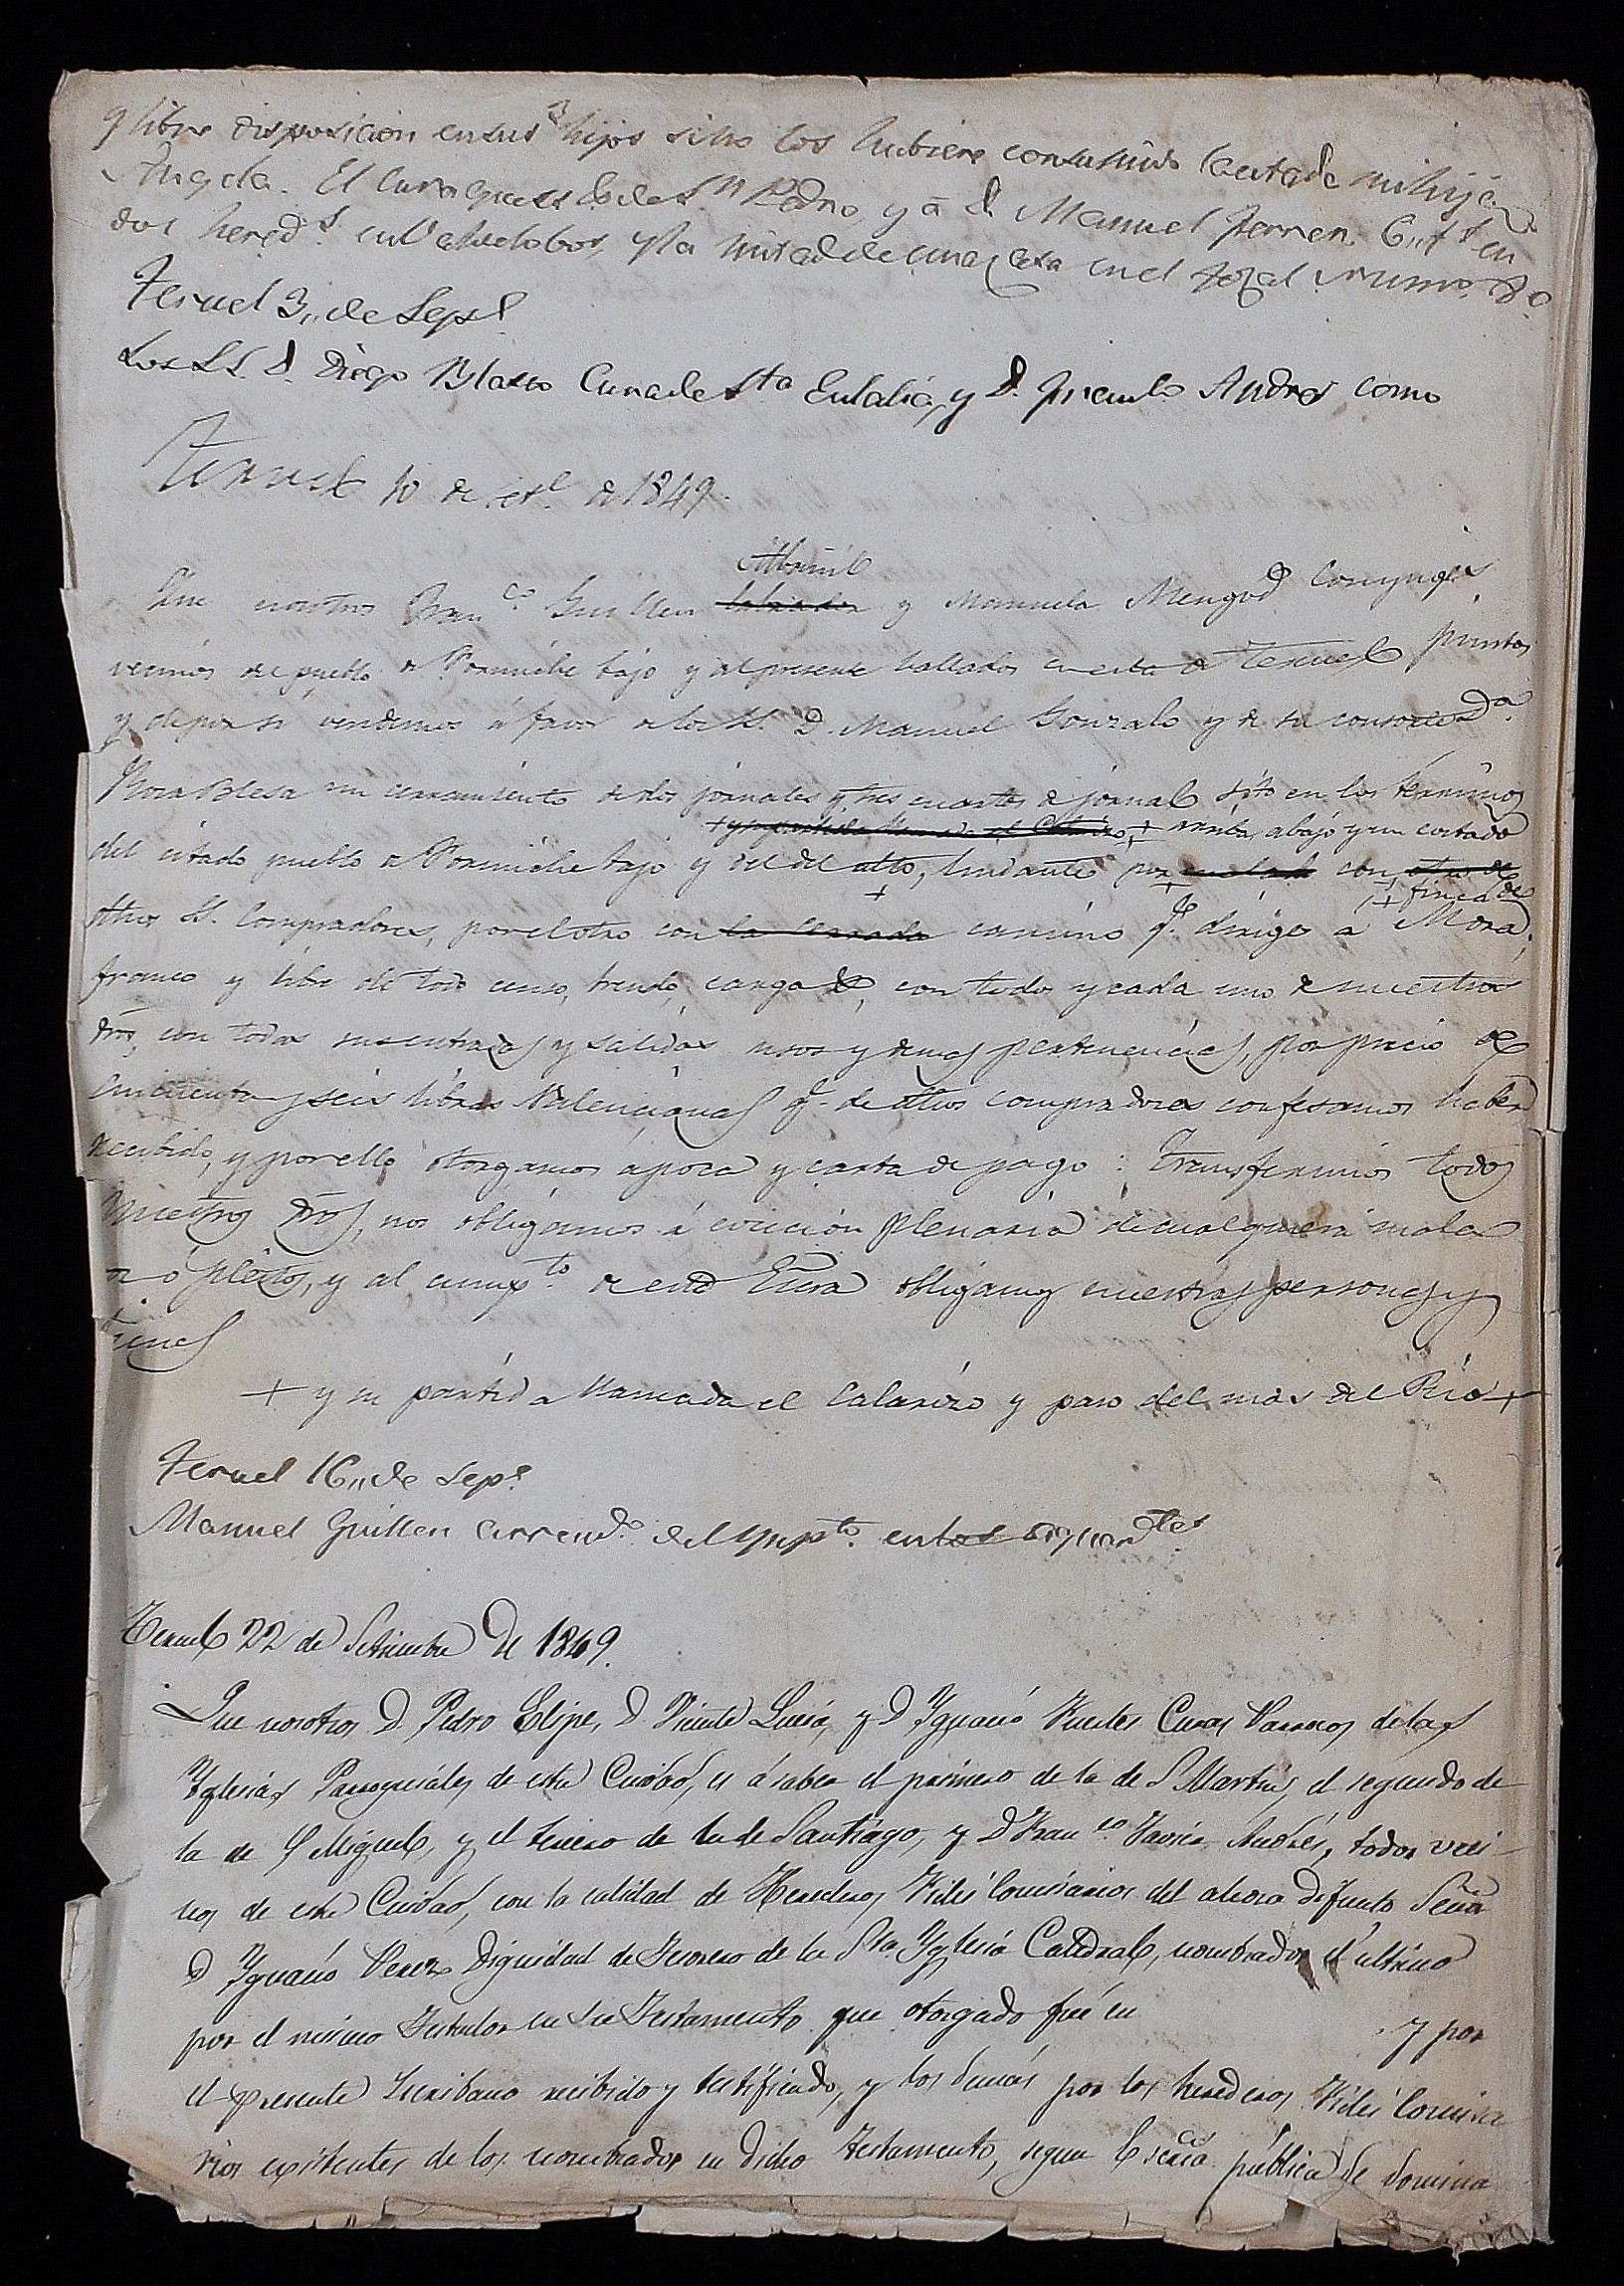 y libre disposicion en sus 3 hijos si no los hubiere consumido la citada mi hija
Angela. El Cura que es de S.n Pedro, y a D. Manuel Ferrer
dos hered.s en Valdelobos, y la mitad de una casa en el Tozal num.o 8.o
Teruel 3,, de Sep.e
Los S.S. D. Diego Blasco Cura de S.ta Eulalia, y D. Andres como
Teruel 10 de set.e de 1849.
Albañil
Que nosotros Fran.co Guillen labrador y Manuela Mengod Conyuges,
vecinos del pueblo de Formiche bajo y al presente hallados en esta de Teruel juntos
y de por si vendemos á favor de los SS. D. Manuel Gonzalo y de su consorte D.a
Rosa Blesa un cerramiento de dos jornales y tres cuartos de jornal sito en los terminos
+ y partida llamada el Calarizo + arriba, abajo y un costado
del citado pueblo de Formiche bajo y del del alto, lindante por un lado con otro de
+ + + finca de
dthos SS. Compradores, por el otro con la cerrada camino q.e dirige a Mora,
franco y libre de todo censo, treudo, carga &, con todos y cada uno de nuestros
dros, con todas sus entradas y salidas usos y demas pertenencias, por precio de
cincuenta y seis libras Valencianas q.e de dthos compradores confesamos haber
recibido, y por ello otorgamos ápoca y carta de pago: Transferimos todos
nuestros dros, nos obligamos á eviccion plenaria de cualquiera mala
voz ó pleito, y al cump.to de esta Escra obligamos nuestras personas y
bienes
+ y su partida llamada el Calarizo y paso del mas del Rio +
Teruel 16,, de Sep.e
Manuel Guillen Arrend.o del Ymp.to en los Aguard.tes
Teruel 22 de Setiembre de 1849.
Que nosotros D. Pedro Elipe, D. Vicente Lucia, y D Ygnacio Fuertes Curas Parrocos de las
Yglesias Parroquiales de esta Ciudad, es á saber el primero de la de S. Martin, el segundo de
la de S Miguel, y el tercero de la de Santiago, y D Fran.co Javier Andrés, todos veci-
nos de esta Ciudad, con la calidad de Herederos Fidei Comisarios del ahora difunto Señor
D Ygnacio Perez Dignidad de Tesorero de la Sta. Yglesia Catedral, nombrados el ultimo
por el mismo Testador en su Testamento que otorgado fué en y por
el presente Escribano recibido y testificado, y los demas por los herederos Fidei Comisa
rios existentes de los nombrados en dicho Testamento, segun Escritura pública de